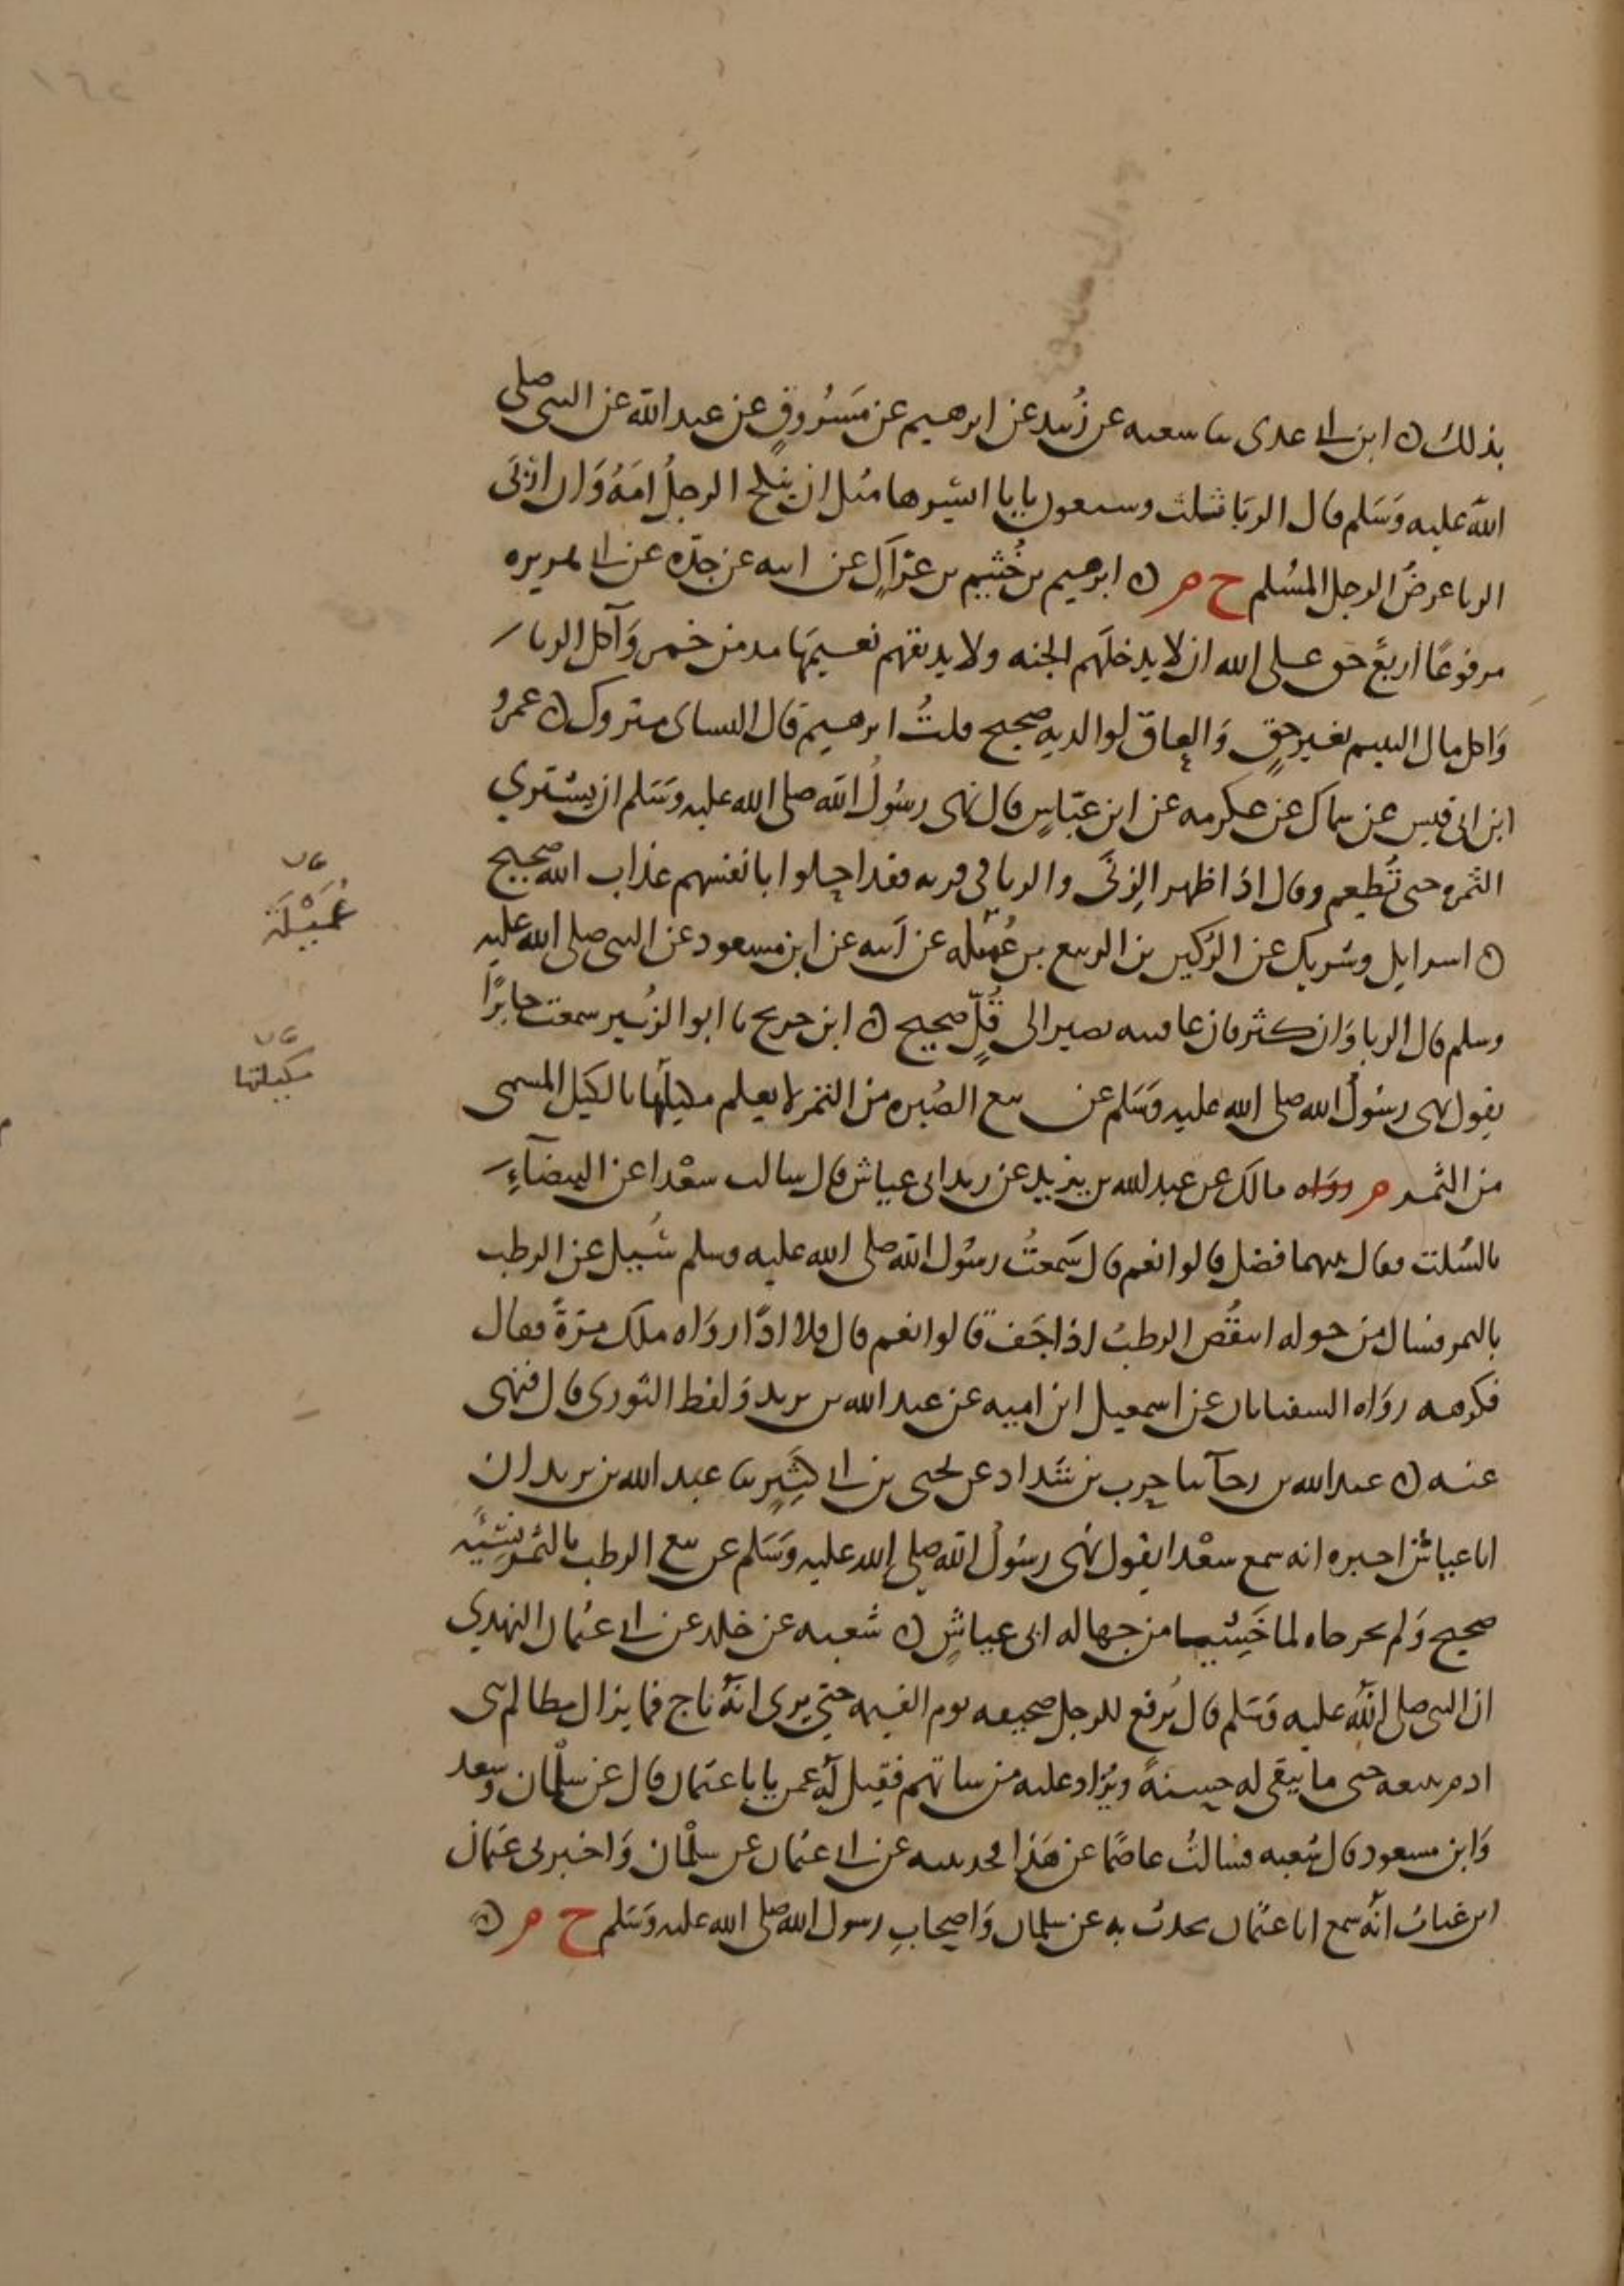 بذلك ه ابن ابي عدى نا شعبه عن زبيد عن ابرهيم عن مَسْرُوقٍ عن عبد الله عن النبي صلى
الله عليه وَسَلم قال الربَا ثلث وسبعون بابا ايسَرها مثل ان ينكح الرجلُ امَهُ وَان اربَى
الربا عرضُ الرجل المسُلم ح م ه ابرهيم بن خُثيم بن عرَاكٍ عن ابيه عن جدّه عن ابي هريره
مرفوعًا اربعٌ حق على الله ان لا يدخلَهم الجنه ولا يذيقهم نعيمَها مدمن خمر وَآكل الربا
وَاكل مال اليتيم بغير حقٍ وَالعاق لوالديه صحيح قلتُ ابرهيم قال النساى متروك ه عمرُو
ابن ابى قيس عن سماك عن عكرمه عن ابن عبّاسٍ قال نهى رسُولُ الله صلى الله عليه وَسَلم ان يشتري
الثمره حتى تُطعم وقال اذا ظهر الزِنَى والربا في قريه فقد احلوا بانفسهم عذاب الله صحيح
ه اسرايل وشريك عن الرُكين بن الربيع بن عُميله عن اَبيه عن ابن مسعود عن النبي صلى الله عليه
وسلم قال الربا وَان كثر فان عاقبته تصير الى قُلٍّ صحيح ه ابن جريح نا ابو الزُبير سمعت جابرًا
يقول نهى رسُولُ الله صلى الله عليه وَسَلم عن بيع الصُبره من التمر لا يعلم مكيلَها بالكيل المسمى
من التَّمر م روَاه مالك عن عبد الله بن يزيد عن زيد ابى عياش قال سالت سعْدا عن البيضَاءِ
بالسُلت فقال بينهما فضل قالوا نعم قال سَمعتُ رسُول الله صلى الله عليه وسلم سُيِل عن الرطب
بالتمر فسال من حوله اينقُص الرطبُ اذا جَف قالوا نعم قال فلا اذًا روَاه ملك مرّةً فقال
فكرهه روَاه السفيانان عن اسمعيل ابن اميه عن عبد الله بن يزيد وَلفظ الثورى قال فنهى
عنه ه عبد الله بن رجَآ نا حرب بن شَداد عن يحيى بن ابي كثِيرٍ نا عبد الله بن يزيد ان
ابا عياش اخبره انه سمع سعْدا يقول نهى رسُولُ الله صلى الله عليه وَسَلم عن بيع الرطب بالتَمر نَسِيَّه
صحيح وَلم يخرجاه لما خَشِيا من جهاله ابى عياشٍ ه شعبه عن خلد عن ابي عثمان النهدي
ان النبى صلى الله عليه وَسَلم قال يُرفع للرجل صحيفه يوم القيمه حتى يرى انهُ ناج فما يزال مظالم بنى
ادم تتبعه حتى ما يبقى له حسنهً ويُزاد عليه من سياتهم فقيل لهُ عمن يابا عثمان قال عن سلْمان وَسعد
وَابن مسعود قال شعبه فسالتُ عاصمًا عن هَذا فحدثنيه عن ابي عثمان عن سلْمان وَاخبرنى عثمان
ابن غياث انهُ سمع ابا عثمان يحدث به عن سلمان وَاصحابِ رسول الله صلى الله عليه وَسَلم ح م ه
عُمَيْلَة
مكيلتها